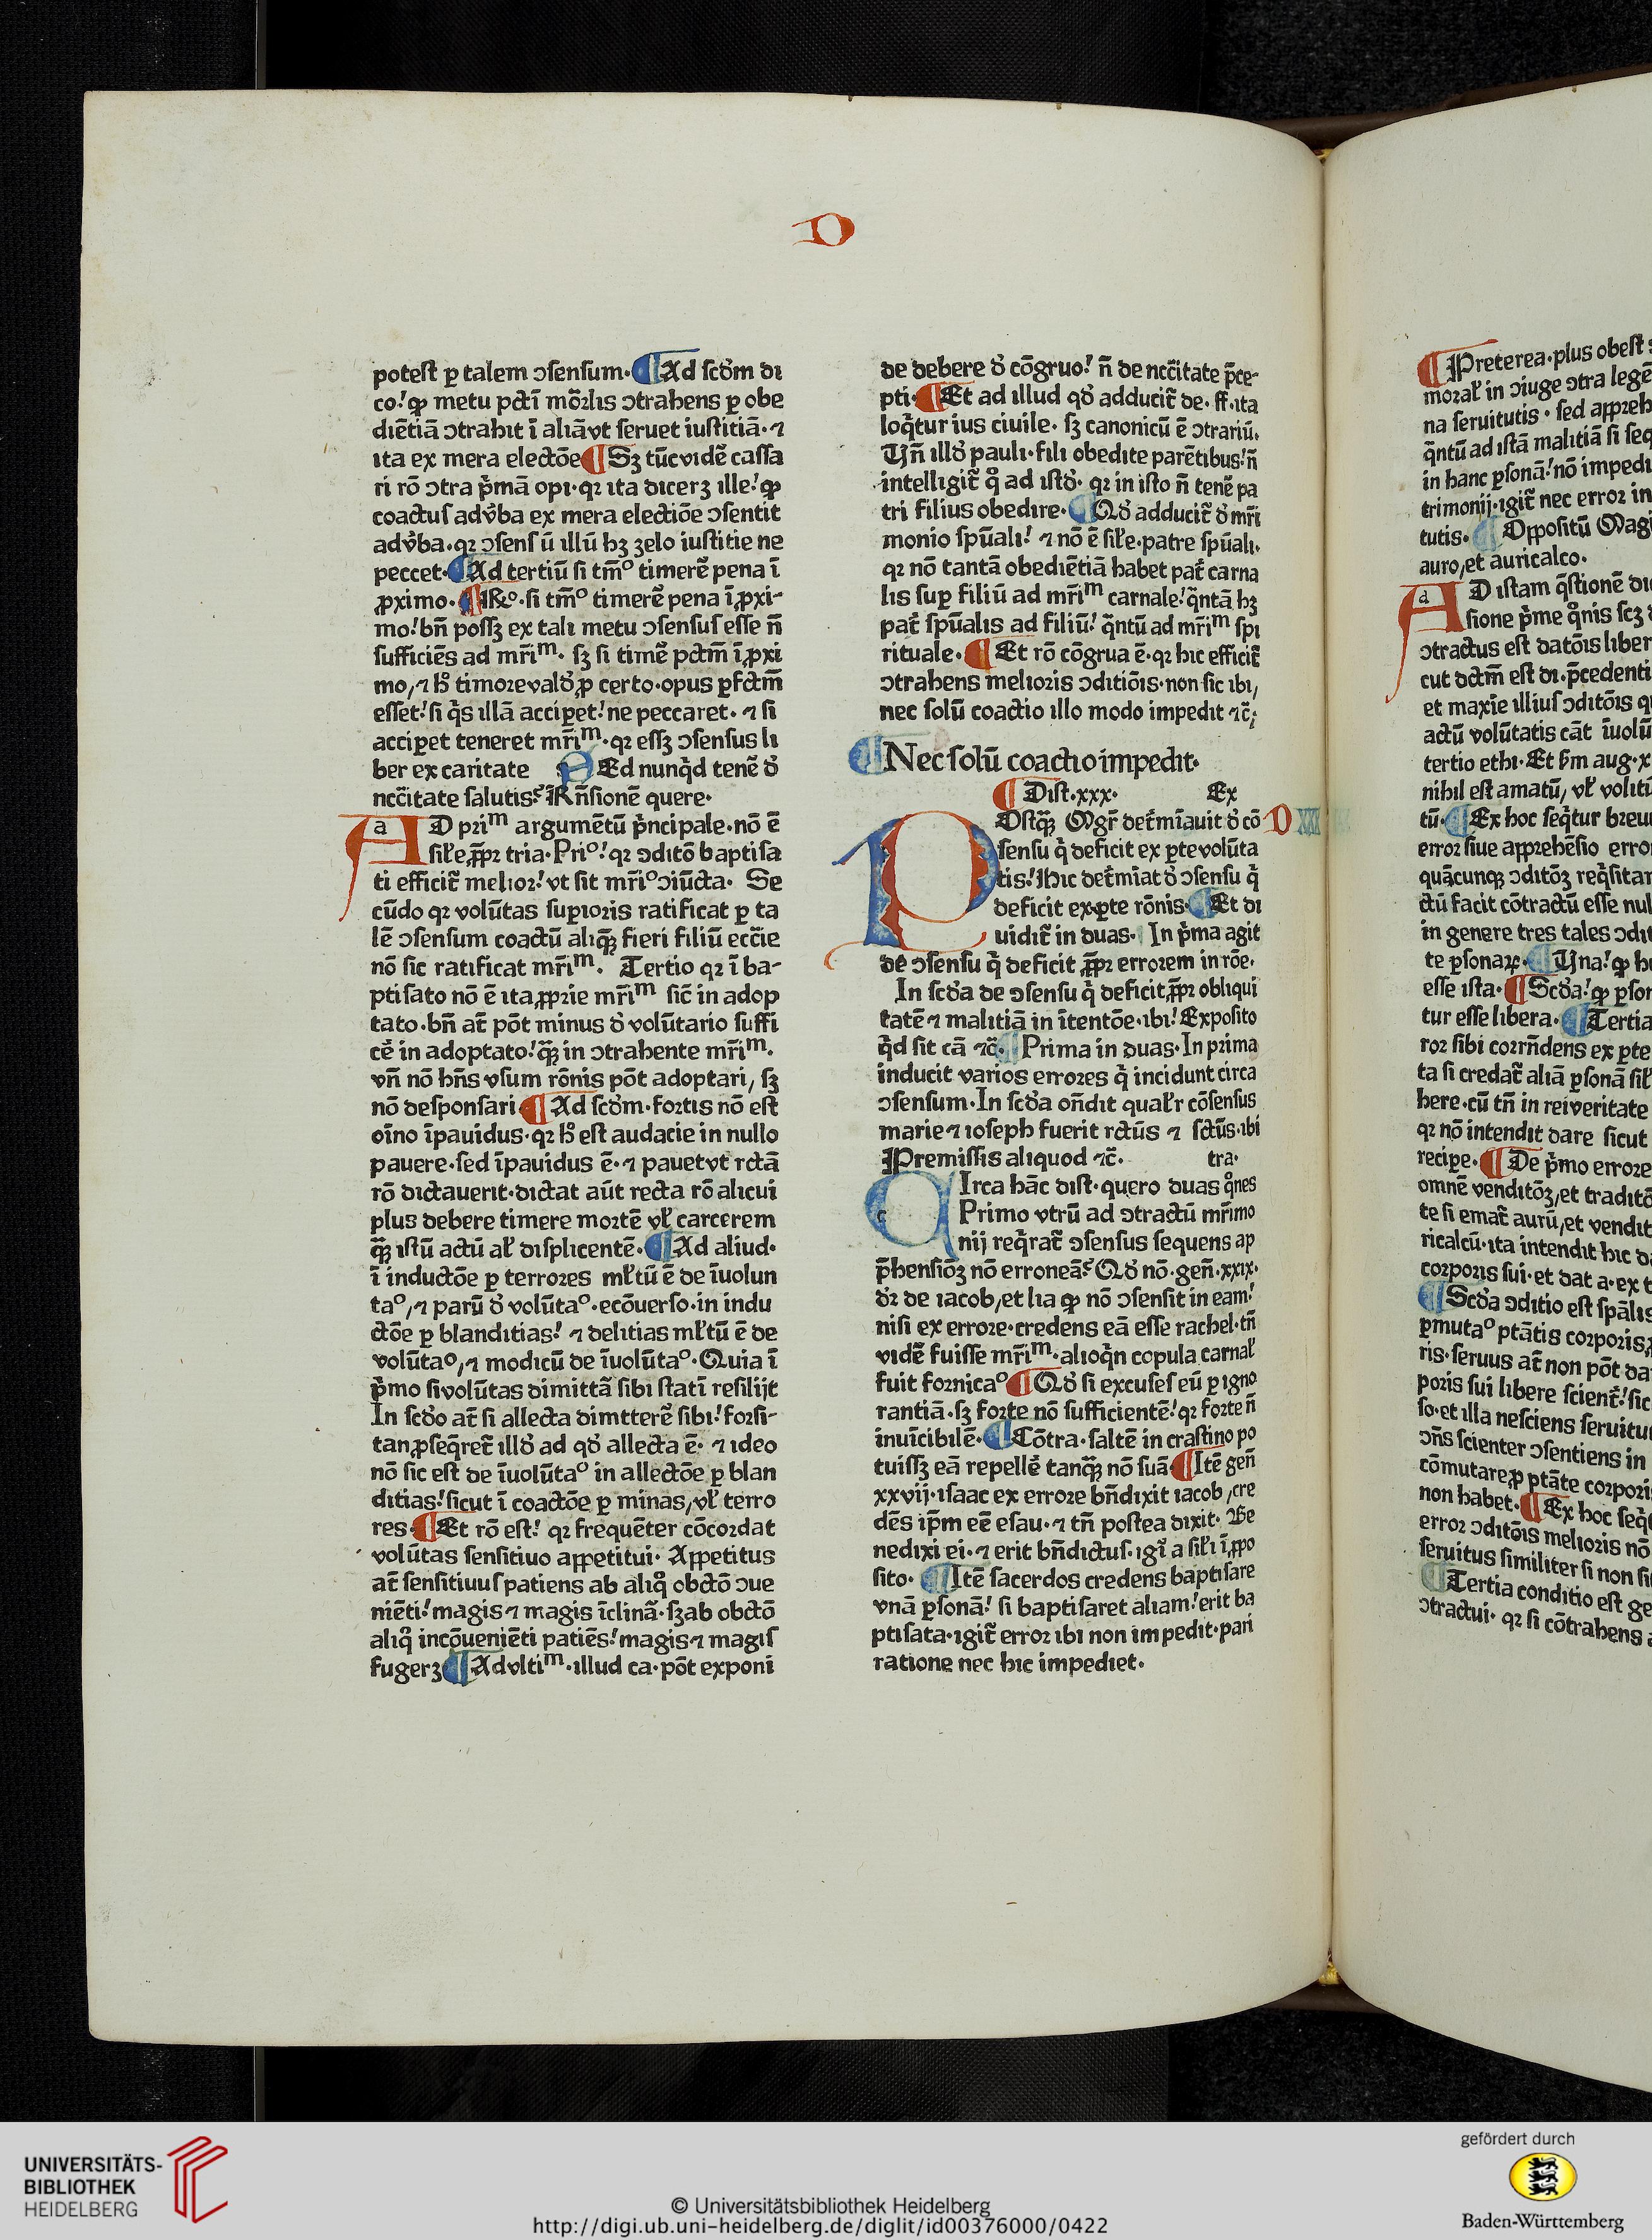 D
potest p talem ↄsensum. ¶ Ad scďm di
co! qp metu pctī mõzlis ↄtrahens p obe
diētiā ↄtrahit ī aliā vt seruet iustitiā. ⁊
ita ex mera electōe ¶ Sꝫ tūc vidẽ cassa
ri rō ↄtra pͥmā opi. qꝛ ita dicerꝫ ille! qp
coactus ad v̓ba ex mera electiōe ↄsentit
ad v̓ba. qꝛ ↄsensū illū hꝫ zelo iustitie ne
peccet. ¶ Ad tertiū si tm̄º timerẽ pena ī
ꝓximo. ¶ Rº. si tm̄º timerẽ pena ī ꝓxi-
mo! bn̄ possꝫ ex tali metu ↄsensus esse n̄
sufficiēs ad mr̄iᵐ. sꝫ si timẽ pctm̄ ī ꝓxi
mo, ⁊ hº timore valď ꝓ certo. opus pfctm̄
esset! si qͥs illā accipet! ne peccaret. ⁊ si
accipet teneret mr̄iᵐ. qꝛ essꝫ ↄsensus li
ber ex caritate Ed nunqͥd tenẽ ď
ncc̄itate salutis? Rn̄sionē quere.
AD pꝛiᵐ argumētū pͥncipale. nō ē
sil̄e ꝓpꝛ tria. Priº! qꝛ ↄditō baptisa
ti efficit̃ melioꝛ! vt sit mr̄iº ↄiūcta. Se
cūdo qꝛ volūtas supioꝛis ratificat p ta
lē ↄsensum coactū aliqꝫ fieri filiū ecc̄ie
nō sic ratificat mr̄iᵐ. Tertio qꝛ ī ba-
ptisato nō ē ita ꝓprie mr̄iᵐ sic̄ in adop
tato. bn̄ at̃ pōt minus ď volūtario suffi
cẽ in adoptato! qꝫ in ↄtrahente mr̄iᵐ.
vn̄ nō hn̄s vsum rōnis pōt adoptari, sꝫ
nō desponsari ¶ Ad scďm. foꝛtis nō est
oīno īpauidus. qꝛ hº est audacie in nullo
pauere. sed īpauidus ē. ⁊ pauet vt rctā
rō dictauerit. dictat aūt recta rō alicui
plus debere timere moꝛtē vl̄ carcerem
qꝫ istū actū al̄ displicentē. ¶ Ad aliud.
ī inductōe p terroꝛes ml̄tū ē de īuolun
taº, ⁊ parū ď volūtaº. ecōuerso. in indu
ctōe p blanditias! ⁊ delitias ml̄tū ē de
volūtaº, ⁊ modicū de īuolūtaº. Quia ī
pͥmo si volūtas dimittā sibi statī resilijt
In scďo at̃ si allecta dimtterẽ sibi! foꝛsi-
tan ꝓseqͥret̃ illď ad qď allecta ē. ⁊ ideo
nō sic est de īuolūtaº in allectōe p blan
ditias! sicut ī coactōe p minas, vl̄ terro
res. ¶ Et rō est! qꝛ frequēter cōcoꝛdat
volūtas sensitiuo appetitui. Appetitus
at̃ sensitiuus patiens ab aliqº obctō ↄue
niēti! magis ⁊ magis īclinā. sꝫ ab obctō
aliqº incōueniēti patiēs! magis ⁊ magis
fugerꝫ ¶ Ad vltiᵐ. illud ca. pōt exponi
de debere ď cōgruo! n̄ de ncc̄itate p̄ce-
pti. ¶ Et ad illud qď adducit̃ de. ff. ita
loqͥtur ius ciuile. sꝫ canonicū ē ↄtrariū.
Vn̄ illď pauli. fili obedite parētibus! n̄
intelligit̃ qº ad istď. qꝛ in isto n̄ tenẽ pa
tri filius obedire. ¶ Qď adducit̃ ď mr̄i
monio spūali! ⁊ nō ē sil̄e. patre spūali.
qꝛ nō tantā obediētiā habet pat̃ carna
lis sup filiū ad mr̄iᵐ carnale! qͣntā hꝫ
pat̃ spūalis ad filiū! qͣntū ad mr̄iᵐ spi
rituale. ¶ Et rō cōgrua ē. qꝛ hic efficit̃
ↄtrahens melioꝛis ↄditiōis. non sic ibi,
nec solū coactio illo modo impedit ⁊c̄.
¶ Nec solū coactio impedit.
¶ Dist. xxx. Ex
POstqꝫ Mgr̄ det̃mīauit ď cō
sensu qͥ deficit ex pte volūta
tis! Hic det̃mīat ď ↄsensu qͥ
deficit ex pte rōnis. ¶ Et di
uidit̃ in duas. In pͥma agit
de ↄsensu qͥ deficit ꝓpꝛ erroꝛem in rōe.
In scďa de ↄsensu qͥ deficit ꝓpꝛ obliqui
tatē ⁊ malitiā in ītentōe. ibi! Exposito
qͥd sit cā ⁊c̄. ¶ Prima in duas. In pꝛima
inducit varios erroꝛes qͥ incidunt circa
ↄsensum. In scďa on̄dit qual̄r cōsensus
marie ⁊ ioseph fuerit rctūs ⁊ sctūs. ibi
Premissis aliquod ⁊c̄. tra.
CIrca hāc dist. quero duas qºnes
Primo vtrū ad ↄtractū mr̄imo
nij reqͥrat̃ ↄsensus sequens ap
p̄hensiōꝫ nō erroneā? Qď nō. gen̄. xxix.
dꝛ de iacob, et lia qp nō ↄsensit in eam!
nisi ex erroꝛe. credens eā esse rachel. tn̄
vidẽ fuisse mr̄iᵐ. alioqͥn copula carnal̄
fuit foꝛnicaº ¶ Qď si excuses eū p igno
rantiā. sꝫ foꝛte nō sufficientē! qꝛ foꝛte n̄
inuīcibilē. ¶ Cōtra. saltē in crastino po
tuissꝫ eā repellẽ tanqꝫ nō suā ¶ Itē gen̄
xxvij. isaac ex erroꝛe bn̄dixit iacob, cre
dēs ip̄m eē esau. ⁊ tn̄ postea dixit. Be
nedixi ei. ⁊ erit bn̄dictus. igĩ a sil̄i ī ꝓpo
sito. ¶ Itē sacerdos credens baptisare
vnā psonā! si baptisaret aliam! erit ba
ptisata. igit̃ erroꝛ ibi non impedit. pari
ratione nec hic impediet.
D XXX
¶ Preterea. plus obest
moꝛal̄ in ↄiuge ↄtra legē
na seruitutis. sed appreh
qͣntū ad istā malitiā si seq
in hanc psonā! nō impedi
trimonij. igit̃ nec erroꝛ in
tutis. ¶ Oppositū Magi
auro, et auricalco.
AD istam qͣstionē
sione pͥme qºnis scꝫ
ↄtractus est datōis liber
cut dctm̄ est di. p̄cedenti
et maxīe illius ↄditōis
actū volūtatis cāt īuolū
tertio ethi. Et ẜm aug. x
nihil est amatū, vl̄ volitū
tū. ¶ Ex hoc seqͥtur bꝛeu
erroꝛ siue appꝛehēsio erro
quācunqꝫ ↄditōꝫ reqͥsitam
ctū facit cōtractū esse nul
in genere tres tales ↄdit
te psonaꝝ. ¶ Vna! qp
esse ista. ¶ Scďa! qp pson
tur esse libera. ¶ Tertia
roꝛ sibi coꝛrn̄dens ex pte
ta si credat̃ aliā psonā sil̄
here. cū tn̄ in rei veritate
qꝛ nō intendit dare sicut
recipe. ¶ De pͥmo erroꝛe
omnē venditōꝫ, et traditō
te si emat̃ aurū, et vendit
ricalcū. ita intendit hic
coꝛpoꝛis sui. et dat a. ex
¶ Scďa ↄditio est spālis
pmutaº ptātis coꝛpoꝛis,
ris. seruus at̃ non pōt
poꝛis sui libere scient̃! sic
so. et illa nesciens seruitu
ↄn̄s scienter ↄsentiens in
cōmutare, ꝓ ptāte coꝛpoꝛi
non habet. ¶ Ex hoc seqͥ
erroꝛ ↄditōis melioꝛis nō
seruitus similiter si non
¶ Tertia conditio est ge
ↄtractui. qꝛ si cōtrahens
UNIVERSITÄTS-
BIBLIOTHEK
HEIDELBERG
© Universitätsbibliothek Heidelberg
http://digi.ub.uni-heidelberg.de/diglit/id00376000/0422
gefördert durch
Baden-Württemberg